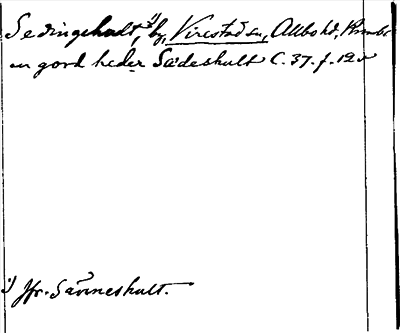 Sedingehult,¹⁾ by, Virestad sn, Allbo hd, Kronobe
en gord heder Sædeshult C. 37. f. 12 v
¹⁾ Jfr. Sävneshult.